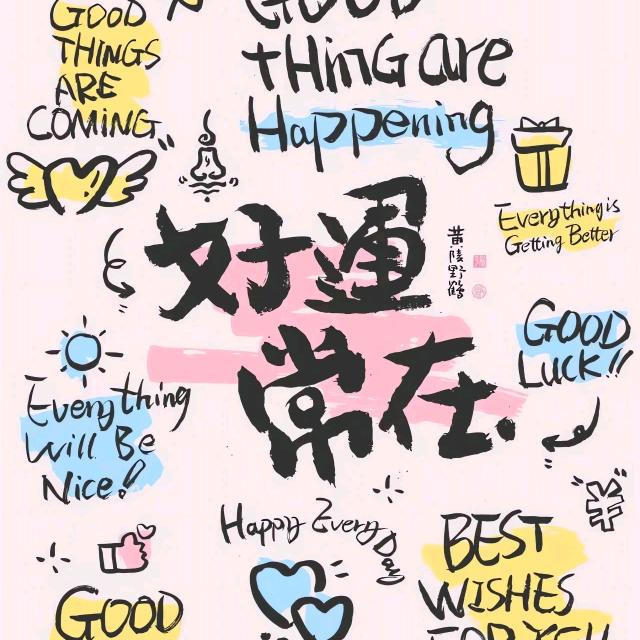 GOOD
THINGS
ARE
COMING
GOOD
tHinG are
Happening
Everything is
Getting Better
好運
常在
黄陵野鶴
GOOD
LUCK!!
Everything
Will Be
Nice!
Happy Every Day
BEST
WISHES
FOR YOU
GOOD